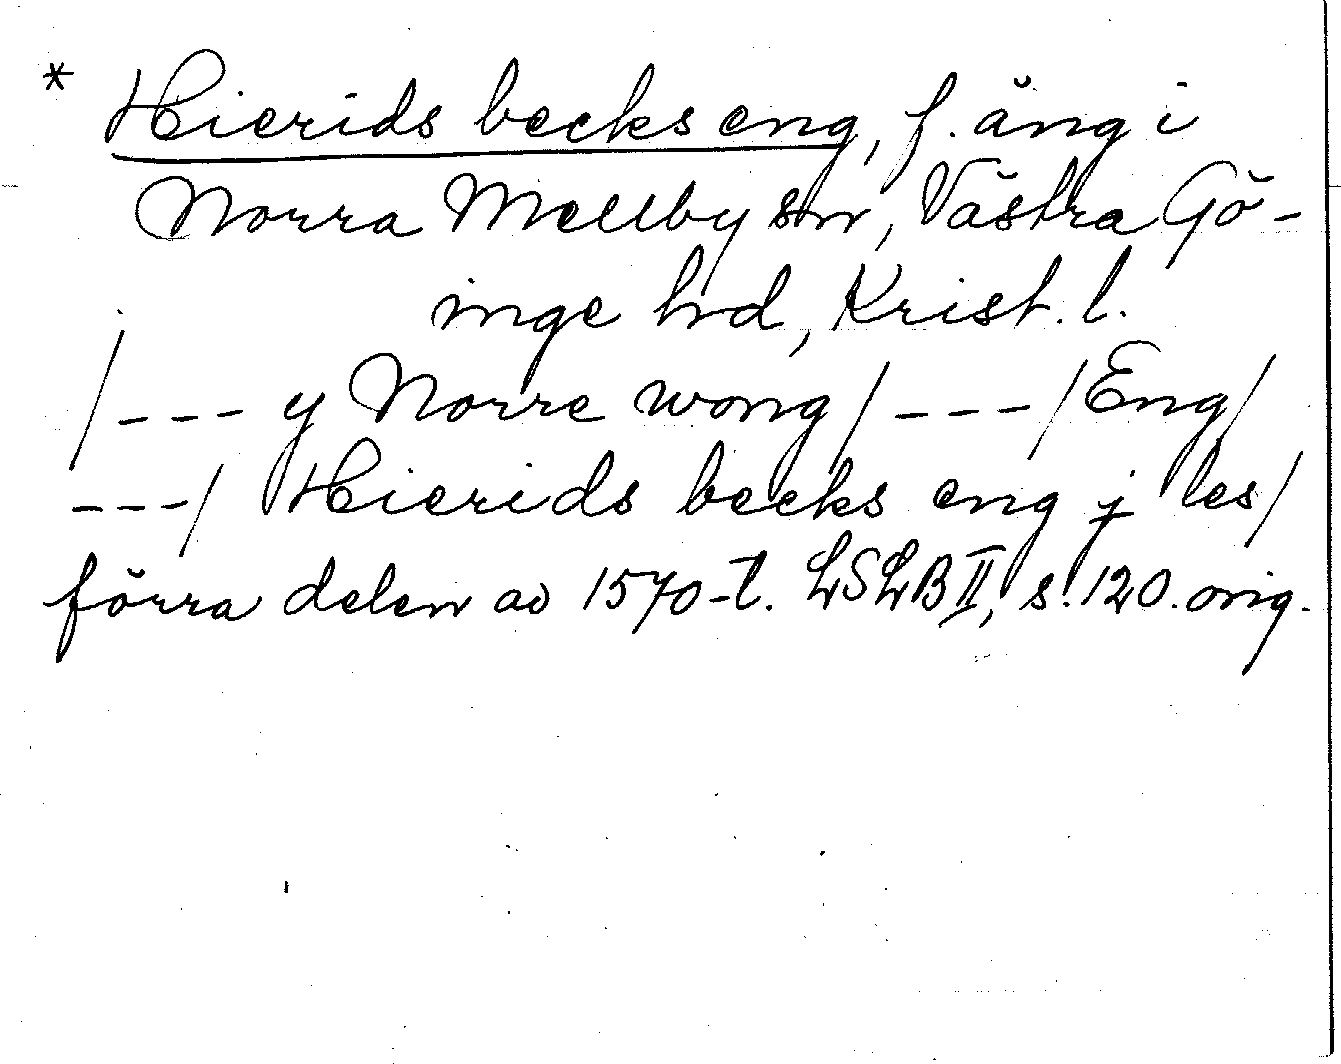 * Hierids becks eng, f. äng i
Norra Mellby sn, Västra Gö-
inge hd, Krist. l.
/--- y Norre wong/ ---/Eng/
---/ Hierids becks eng j les/
förra delen av 1570-t. LSLB II, s. 120. orig.